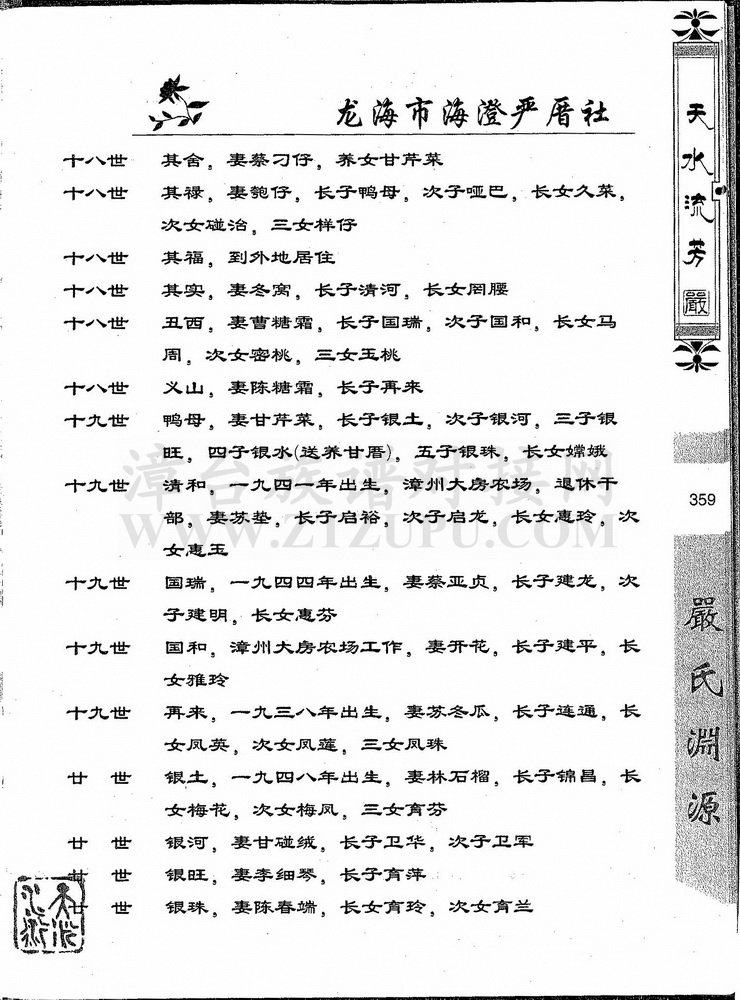 龙海市海澄严厝社
十八世 其舍，妻蔡刁仔，养女甘芹菜
十八世 其禄，妻匏仔，长子鸭母，次子哑巴，长女久菜，
次女碰治，三女样仔
十八世 其福，到外地居住
十八世 其实，妻冬窝，长子清河，长女罔腰
十八世 丑西，妻曹糖霜，长子国瑞，次子国和，长女马
周，次女密桃，三女玉桃
十八世 义山，妻陈糖霜，长子再来
十九世 鸭母，妻甘芹菜，长子银土，次子银河，三子银
旺，四子银水(送养甘厝)，五子银珠，长女嫦娥
十九世 清和，一九四一年出生，漳州大房农场，退休干
部，妻苏垫，长子启裕，次子启龙，长女惠玲，次
女惠玉
十九世 国瑞，一九四四年出生，妻蔡亚贞，长子建龙，次
子建明，长女惠芬
十九世 国和，漳州大房农场工作，妻开花，长子建平，长
女雅玲
十九世 再来，一九三八年出生，妻苏冬瓜，长子连通，长
女凤英，次女凤莲，三女凤珠
廿 世 银土，一九四八年出生，妻林石榴，长子锦昌，长
女梅花，次女梅凤，三女育芬
廿 世 银河，妻甘碰绒，长子卫华，次子卫军
廿 世 银旺，妻李细琴，长子育萍
廿 世 银珠，妻陈春端，长女育玲，次女育兰
天水流芳
嚴
359
嚴氏淵源
漳台族谱对接网
WWW.ZTZUPU.COM